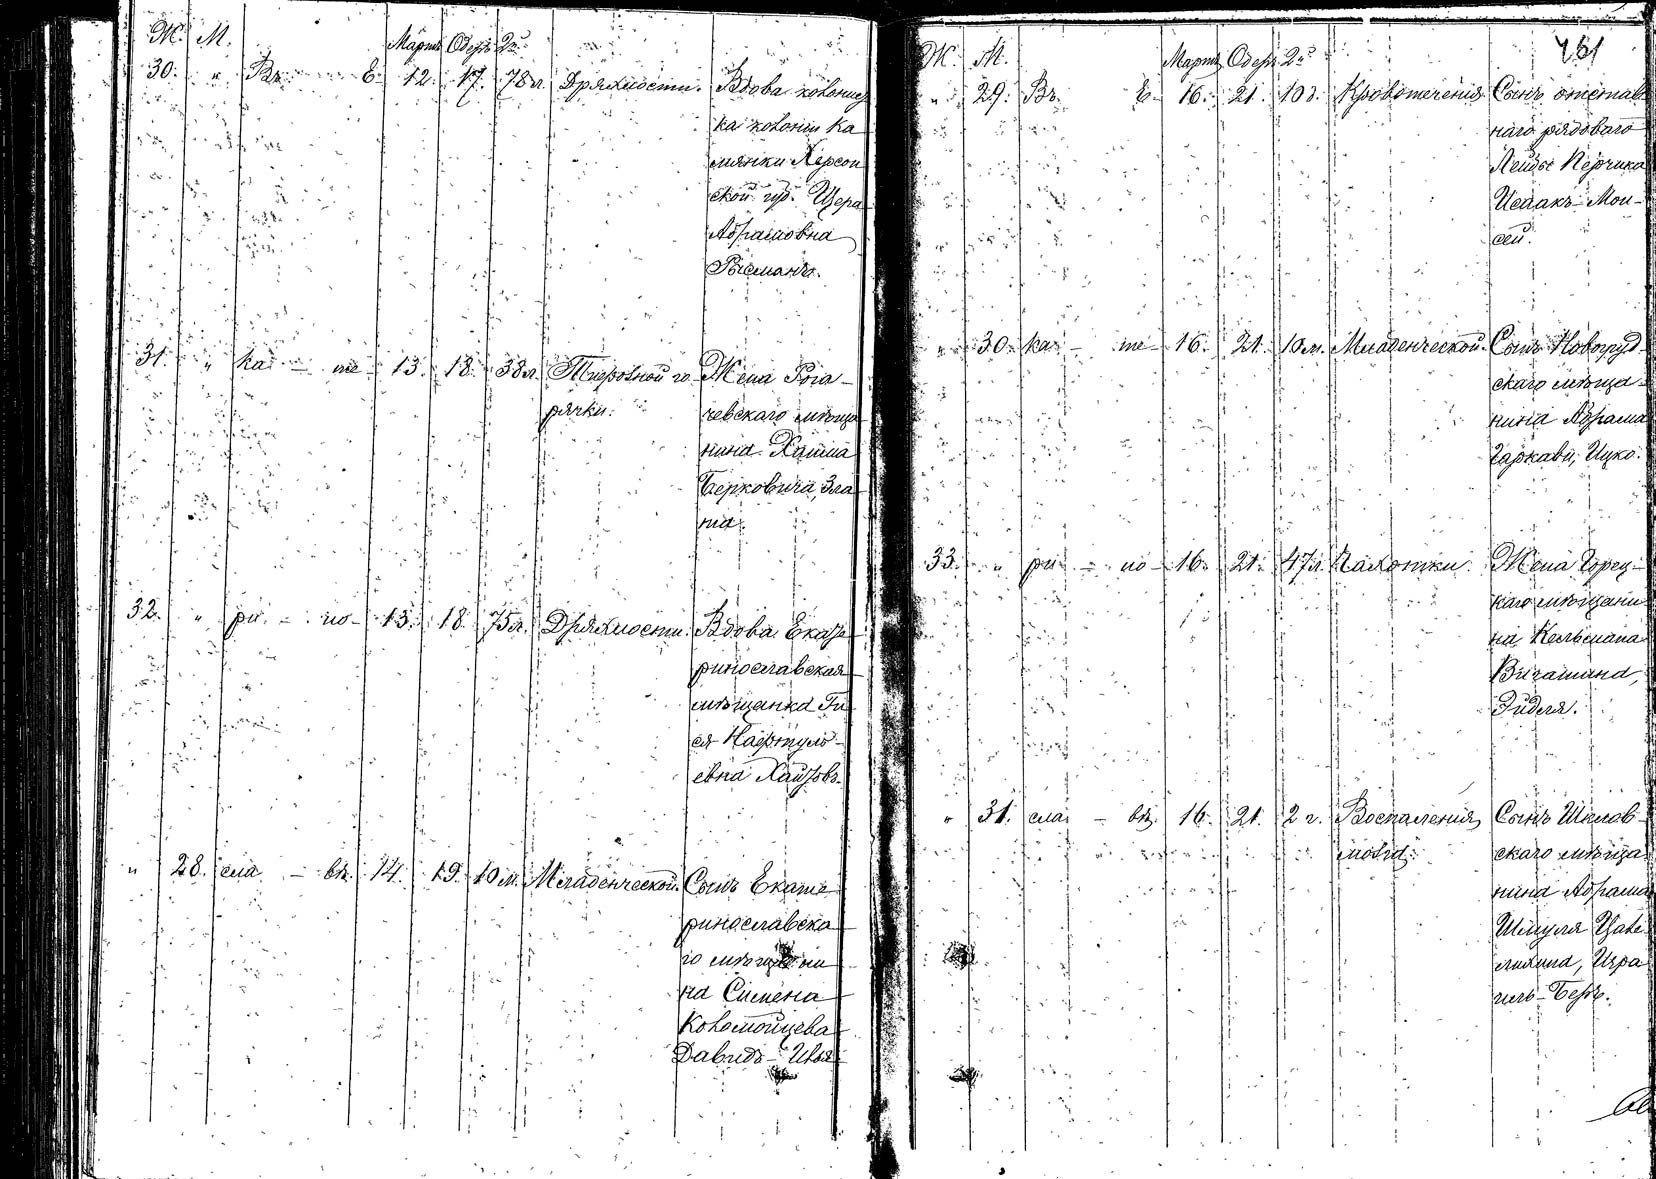 Ж. М. Мартъ Одеръ 2й
30. " Въ Е- 12. 17. 78 л. Дряхлости. Вдова колонист
ка колоніи Ка
мянки Херсон
ской губ. Цера
Абрамовна
Рысманъ.
31. " ка - те- 13. 18. 38 л. Тифозной го- Жена Рога-
рячки. чевскаго мѣща
нина Хаима
Берковича, Зла
та.
32. " ри - но- 13. 18 75 л. Дряхлости. Вдова Екате-
ринославская
мѣщанка Ги
ся
евна
" 28. сла - вѣ. 14. 19. 10 м. Младенческой. Сынъ Екате
ринославска
го мѣщани
на Симена
Коломойцева
Давидъ- Илья
461
Ж. М. Мартъ Одеръ 2й
" 29. Въ Е- 16. 21. 10 д. Кровотеченія Сынъ отстав
наго рядоваго
Лейбы Перчика
Исаакъ- Мои-
сей.
" 30. ка - те- 16. 21. 10 м. Младенческой. Сынъ Новогруд-
скаго мѣща-
нина Абрама
Гаркави, Ицко.
33. " ри - но- 16. 21. 47 л. Чахотки. Жена Горец-
каго мѣщани-
на Кельмана
Вигамина,
Эйдля.
" 31. сла - вѣ. 16. 21. 2 г. Воспаленія Сынъ Шклов-
мозга. скаго мѣща
нина Абрама
Шмуля
Изра
иль- Беръ.